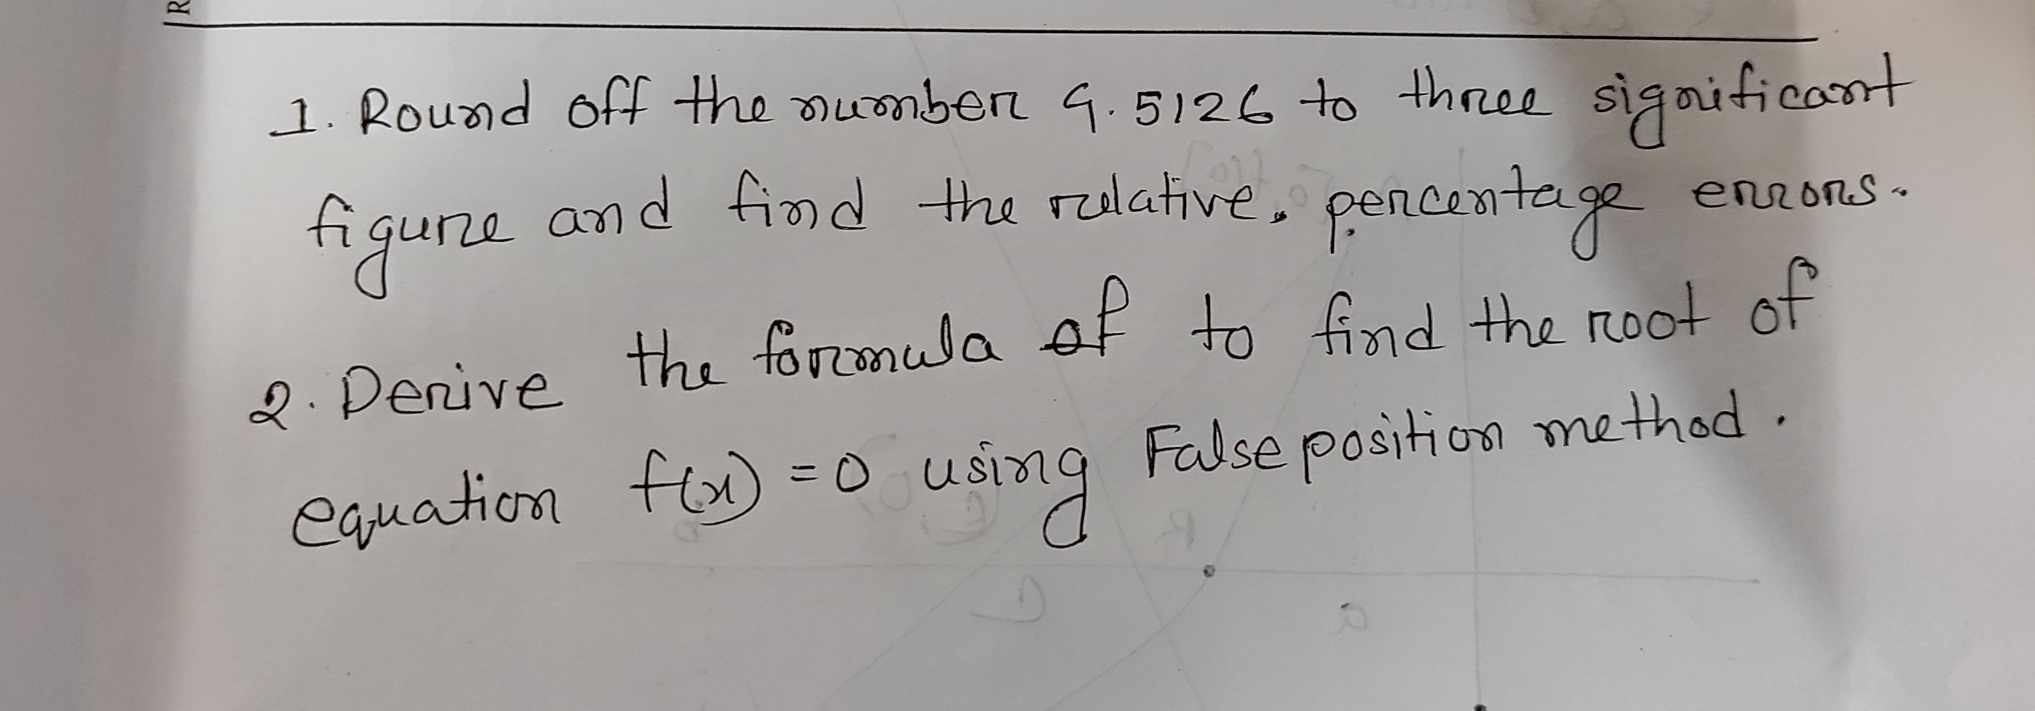 1. Round off the number 9.5126 to three significant
figure and find the relative, percentage errors.
2. Derive the formula of to find the root of
equation f(x) = 0 using False position method.